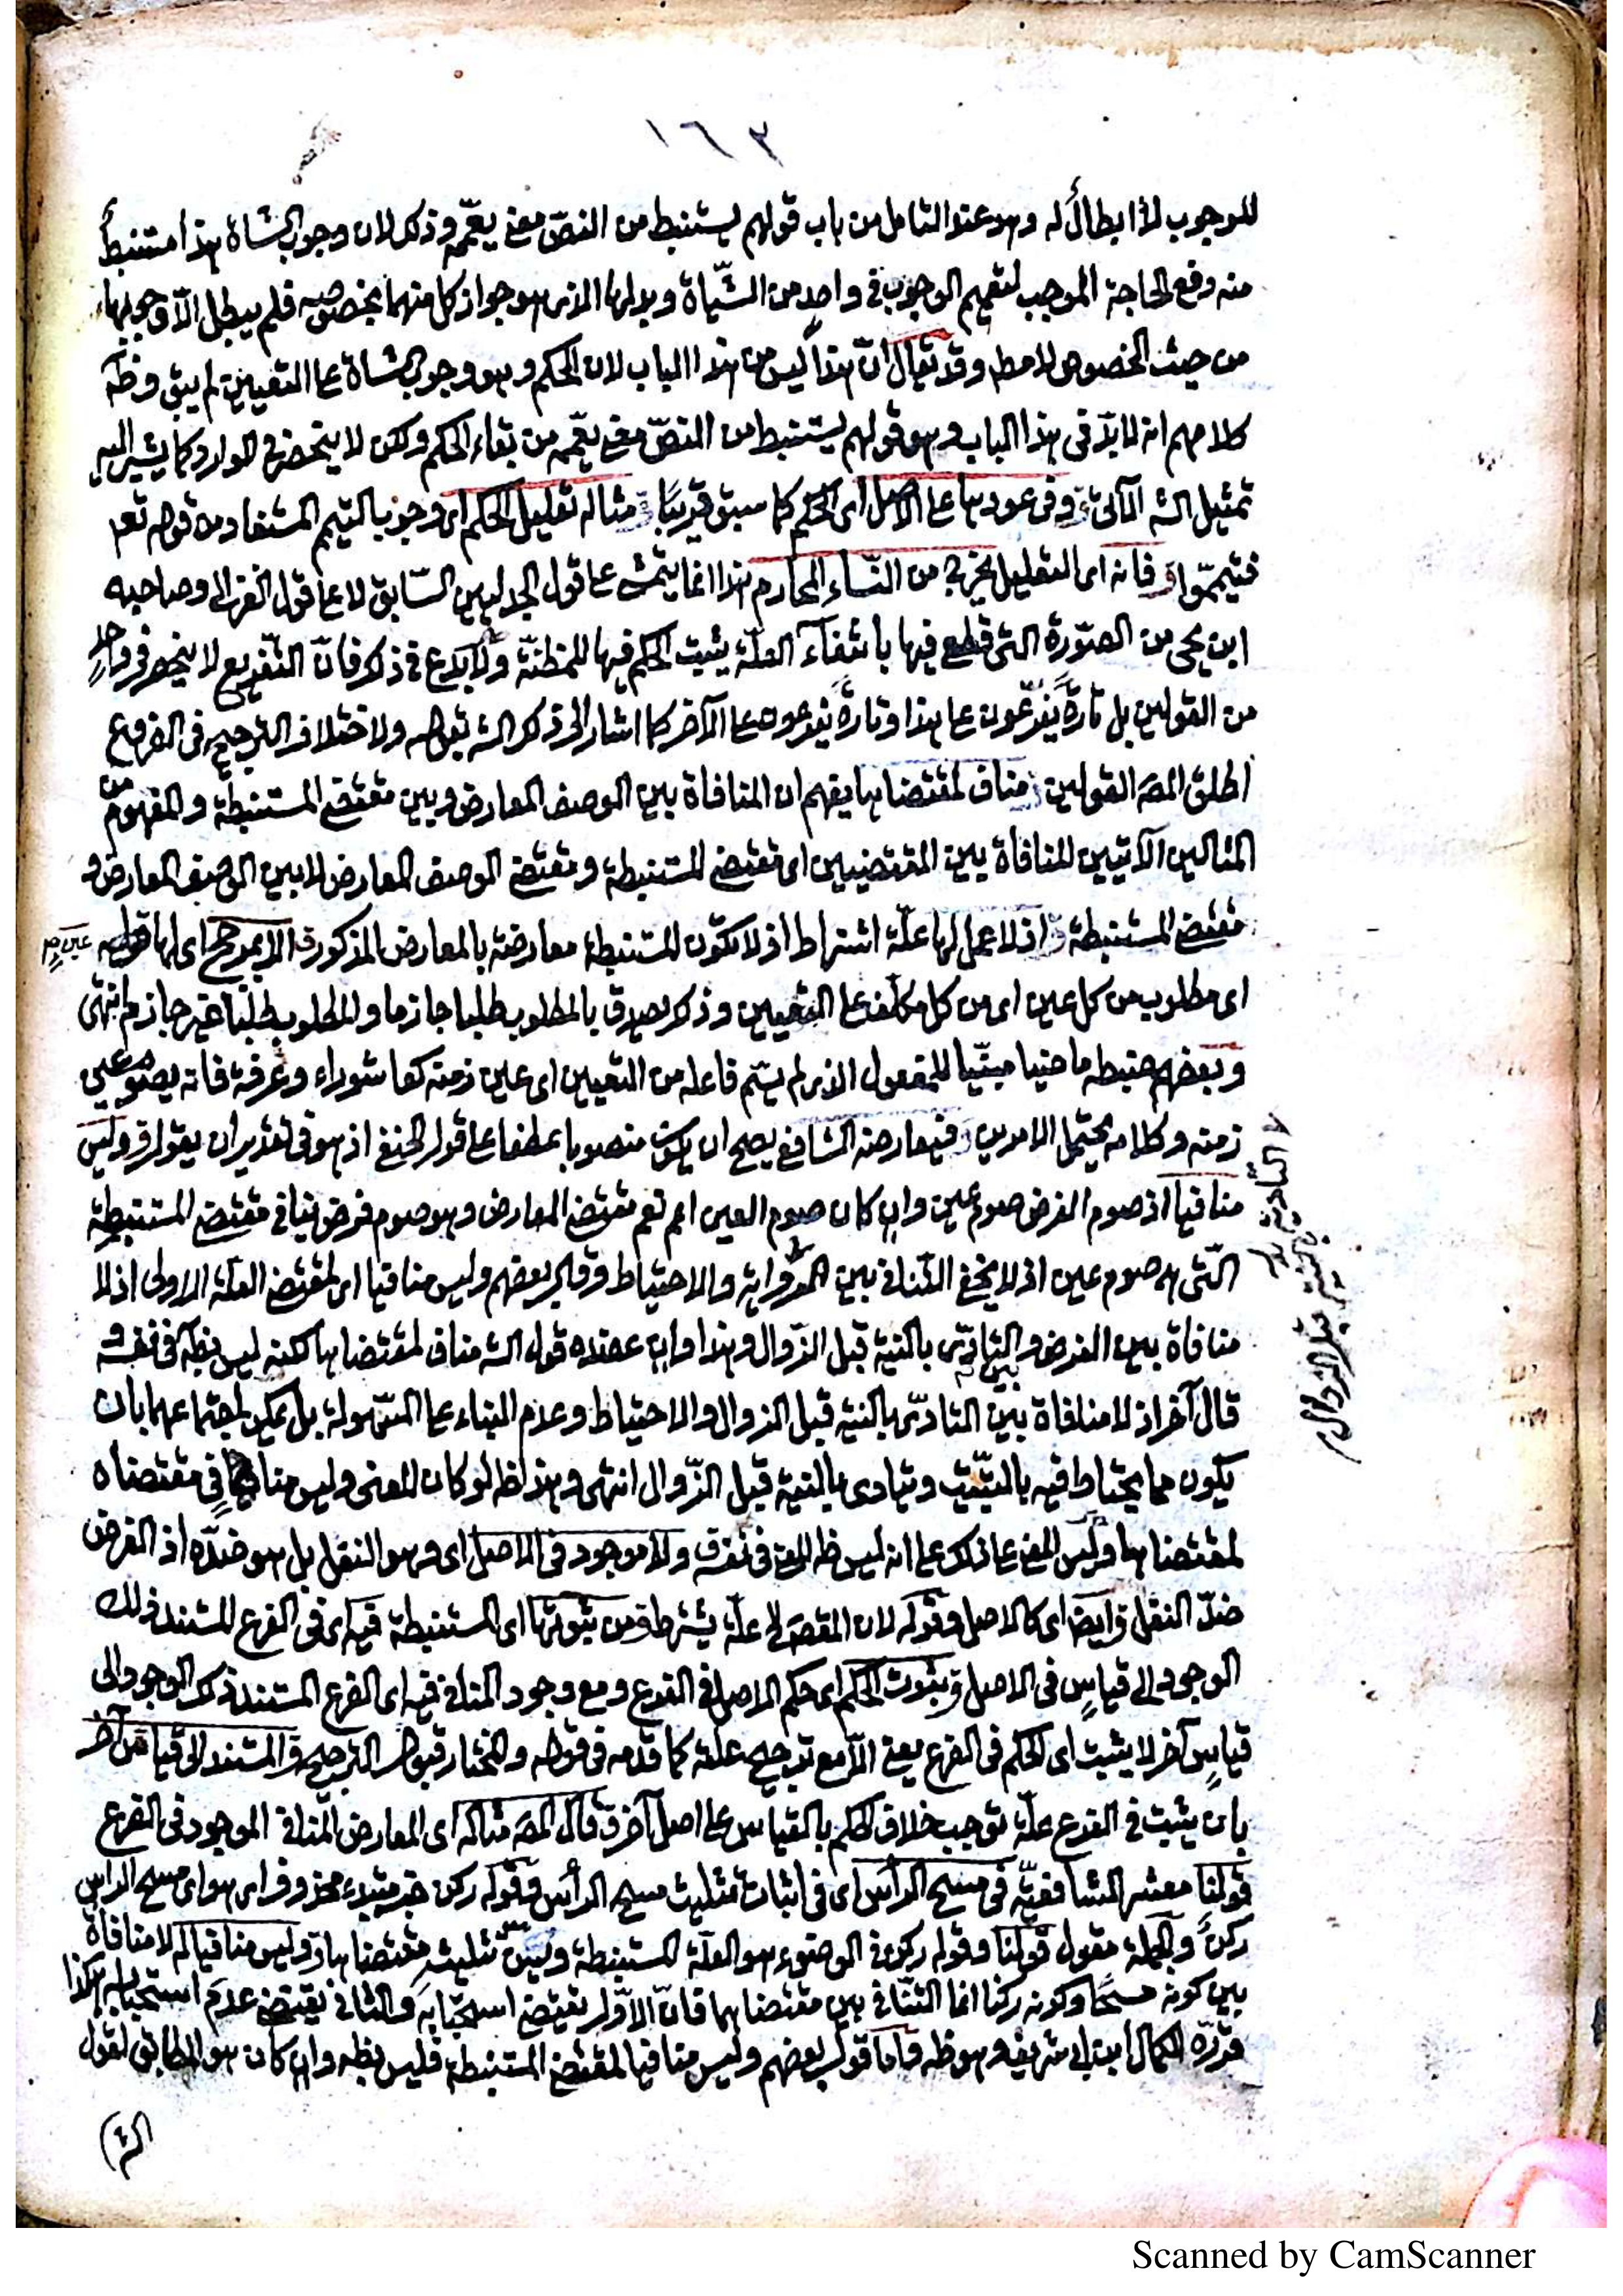 ١٦٢
للوجوب لا ابطال له وهو عند التامل من باب قولهم يستنبط من النصّ معنى يعمّمه وذلك لان وجوب الشاة هذا مستنبط
منه دفع الحاجة الموجب لتعميم الوجوب في واحد من الشّياة وبدلها الذى هو جواز كل منهما بخصوصه فلم يبطل الّا وجوبها
من حيث الخصوص لا مط وقد يقال انّ هذا ليس من هذا الباب لان الحكم وهو وجوب الشاة على التعيين لم يبق وظ
كلامهم انه لا بدّ فى هذا الباب وهو قولهم يستنبط من النصّ معنى يعمّمه من بقاء الحكم ولكن لا ينحصر في الوارد كما يشير اليه
تمثيل الشه الآتى وفى عودها على الاصل اى الحكم كما سبق قريبًا مثاله تعليل الحكم اى وجوب التيمم المستفاد من قوله تعه
فتيمّموا فانه اى التعليل يخرج من النّساء المحارم هذا انما يتمشى على قول الجدليين السّابق لا على قول الغزالى وصاحبه
ابن يحى من الصّورة التى قطع فيها بانتفآء العلّة يثبت الحكم فيها للمظنّة ولا بدع في ذلك فانّ التفريع لا ينحصر فى واحدٍ
من القولين بل تارةً يفرّعون على هذا وتارةً يفرعون على الآخر كما اشار الى ذكر الشه بقوله ولاختلاف الترجيح فى الفروع
اطلق المصه القولين مناف لمقتضاها يفهم ان المنافاة بين الوصف المعارض وبين مقتضى المستنبطة والمفهوم من
المثالين الآتيين المنافاة بين المقتضيين اى مقتضى المستنبطة ومقتضى الوصف المعارض لا بين الوصف المعارض و
مقتضى المستنبطة اذ لا عمل لها علّة اشتراط اذ لا تكون المستنبطة معارضة بالمعارض المذكور الا بمرجح اى لها قوله عين
اى مطلوب من كل عين اى من كل مكلف على التعيين وذكر يصدق بالمطلوب طلبا جازما والمطلوب طلبًا غير جازم انتهى
وبعضهم ضبطه ماضيا مبنيّا للمفعول الذى لم يسّم فاعله من التعيين اى عين زمنه كعاشوراء وعرفة فانه يصوم عين
زمنه وكلامه يحتمل الامرين فيعارضه الشافعى يصح ان يكون منصوبا عطفا على قول الحنفى اذ هو فى تقدير ان يقول وليس
منافيا اذ صوم الفرض صوم عين وان كان صوم العين اعم نعم مقتضى المعارض وهو صوم فرض ينافى مقتضى المستنبطة
التّى هى صوم عين اذ لا يخفى التّنافى بين والاحتياط وقول بعضهم وليس منافيا اى لمقتضى العلّة الاولى اذ لا
منافاة بين الفرض والتادّى بالنية قبل الزّوال وهذا وان عضده قول الشه مناف لمقتضاها لكنه ليس بظ فى نفسه و
قال آخر اذ لا منافاة بين التادّى بالنية قبل الزوال والاحتياط وعدم البناء على السّهولة بل يمكن اجتماعهما بان
يكون مما يحتاط فيه بالتبييت ويتادى بالنية قبل الزّوال انتهى وهذا ظ لو كان المعنى وليس منافيا فى مقتضاه
لمقتضاها وليس المعنى على ذلك على انه ليس ظ المعنى فى نفسه ولا موجود فى الاصل اى وهو النفل بل هو ضدّه اذ الفرض
ضدّ النفل وايضا اى كالاصل وقوله لان المقصه علّة يشترط من ثبوتها اى المستنبطة فيه اى فى الفرع المستند ذلك
الوجود الى قياسٍ فى الاصل وثبوت الحكم اى حكم الاصل فى الفرع ومع وجود المنافى فيه اى الفرع المستند ذلك الوجود الى
قياسٍ آخر لا يثبت اى الحكم فى الفرع يعنى الّا مع ترجيح علّته كما قدمه فى قوله والمختار قبول الترجيح والمستند الى قياس آخر
بان يثبت فى الفرع علّة توجب خلاف الحكم بالقياس على اصل آخر قال المصه مثاله اى المعارض المنافى الموجود فى الفرع
قولنا معشر الشافعيّة فى مسح الرأس اى فى اثبات تثليث مسح الرأس وقوله ركن خبر مبتدء محذوف اى هو اى مسح الراس
ركنٌ والجملة مقول قولنا وقوله ركن فى الوضوء هو العلّة المستنبطة وليس تثليثه مقتضاها وليس منافيا له لا منافاة
بين كونه مسحًا وكونه ركنا انما التنافى بين مقتضاهما فانّ الاوّل يقتضى استحبابه والثانى يقتضى عدم استحبابه هكذا
قرّره الكمال ابن ابى شريف وهو ظ واما قول بعضهم وليس منافيا لمقتضى المستنبطة فليس بظ وان كان هو المطابق لقول
الشه
قبل الزوال
Scanned by CamScanner